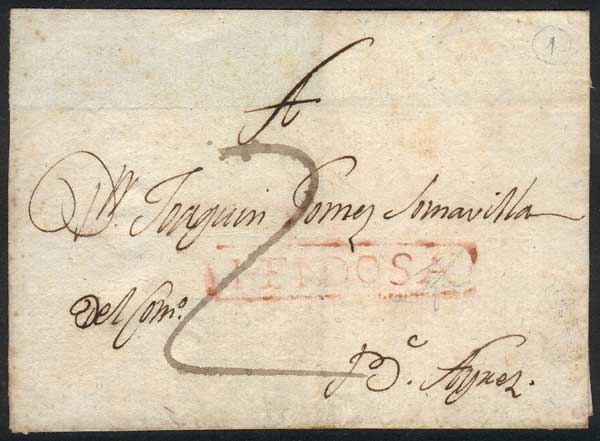 1
A
Dn. Joaquin Gomez Somavilla
MENDOSA
Del Como.
2
Bs. Ayrez.